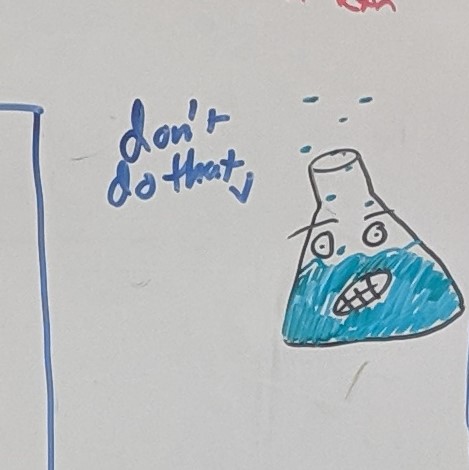 don't
do that